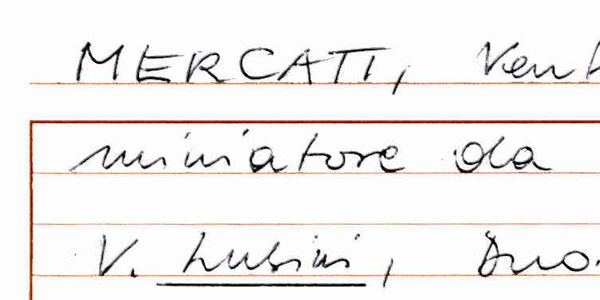 MERCATI, Ven
miniatore da
V. Lusini, Duo.